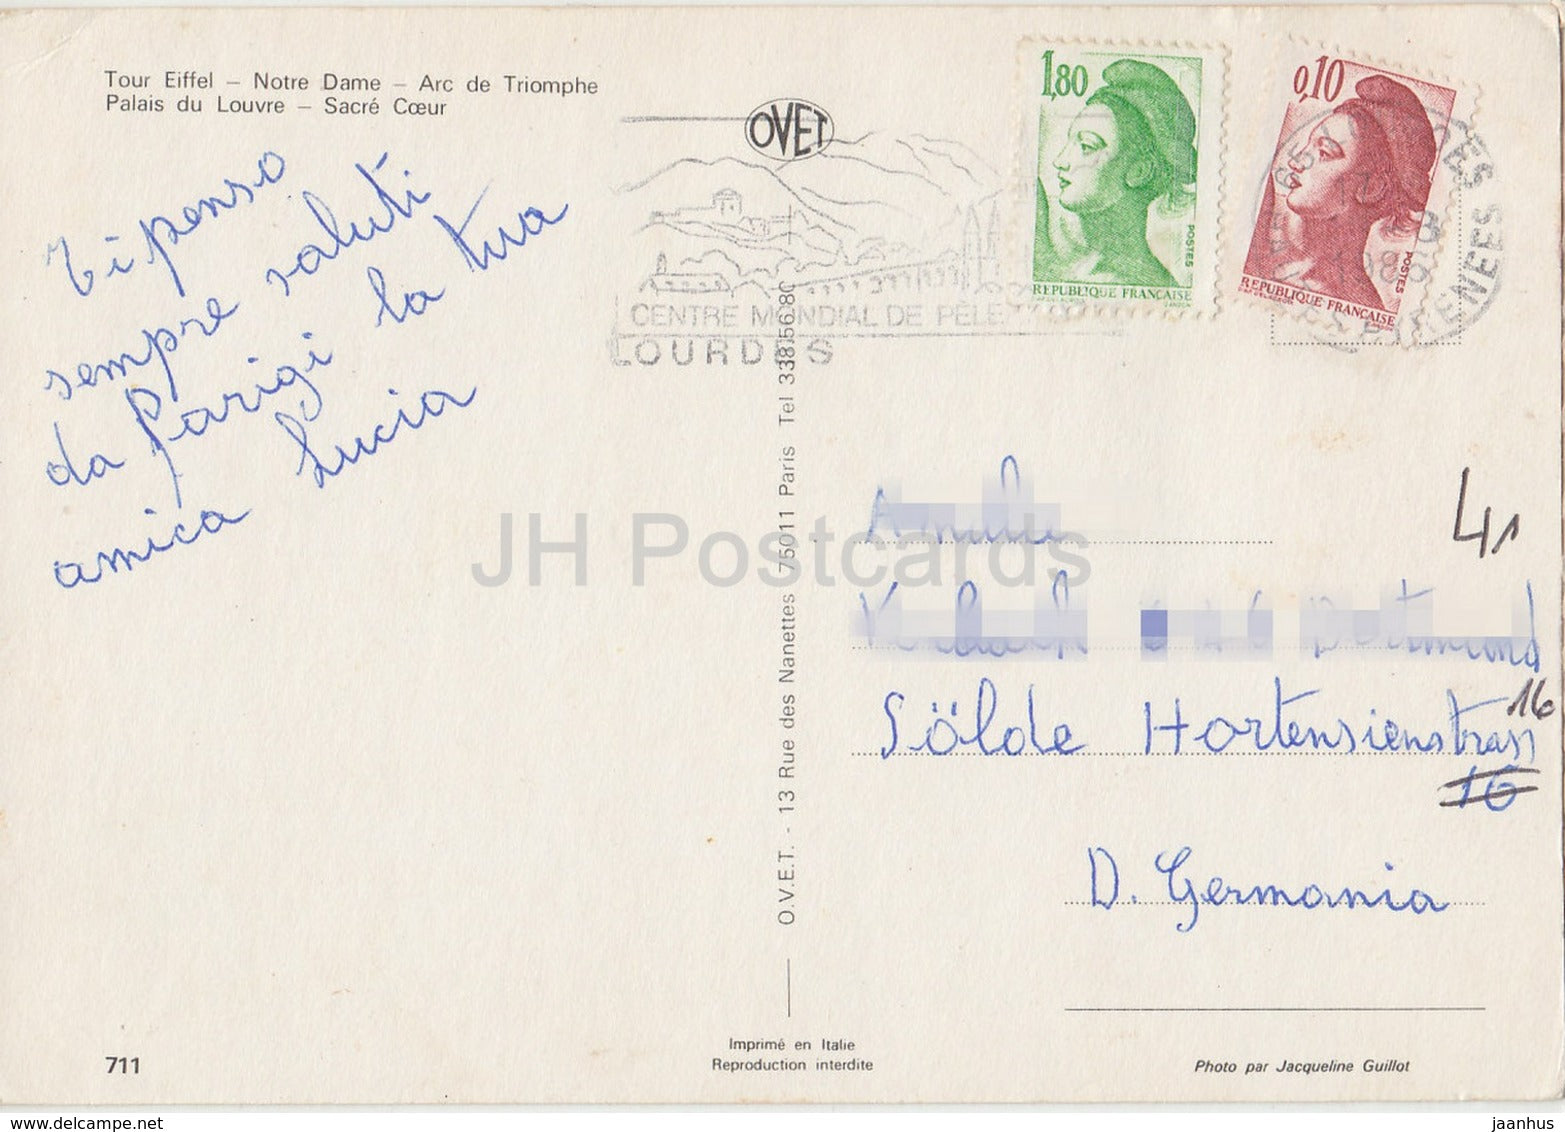 Tour Eiffel – Notre Dame – Arc de Triomphe
Palais du Louvre – Sacré Cœur
Ti penso
sempre saluti
da Parigi la tua
amica Lucia
OVET
CENTRE MONDIAL DE PÈLE
LOURDES
1,80
POSTES
REPUBLIQUE FRANÇAISE
0,10
POSTES
REPUBLIQUE FRANÇAISE
O.V.E.T. - 13 Rue des Nanettes 75011 Paris Tel 338.56.80
JH Postcards
41
Sölde Hortensienstrass
16
16
D. Germania
711
Imprimé en Italie
Reproduction interdite
Photo par Jacqueline Guillot
www.delcampe.net
jaanhus